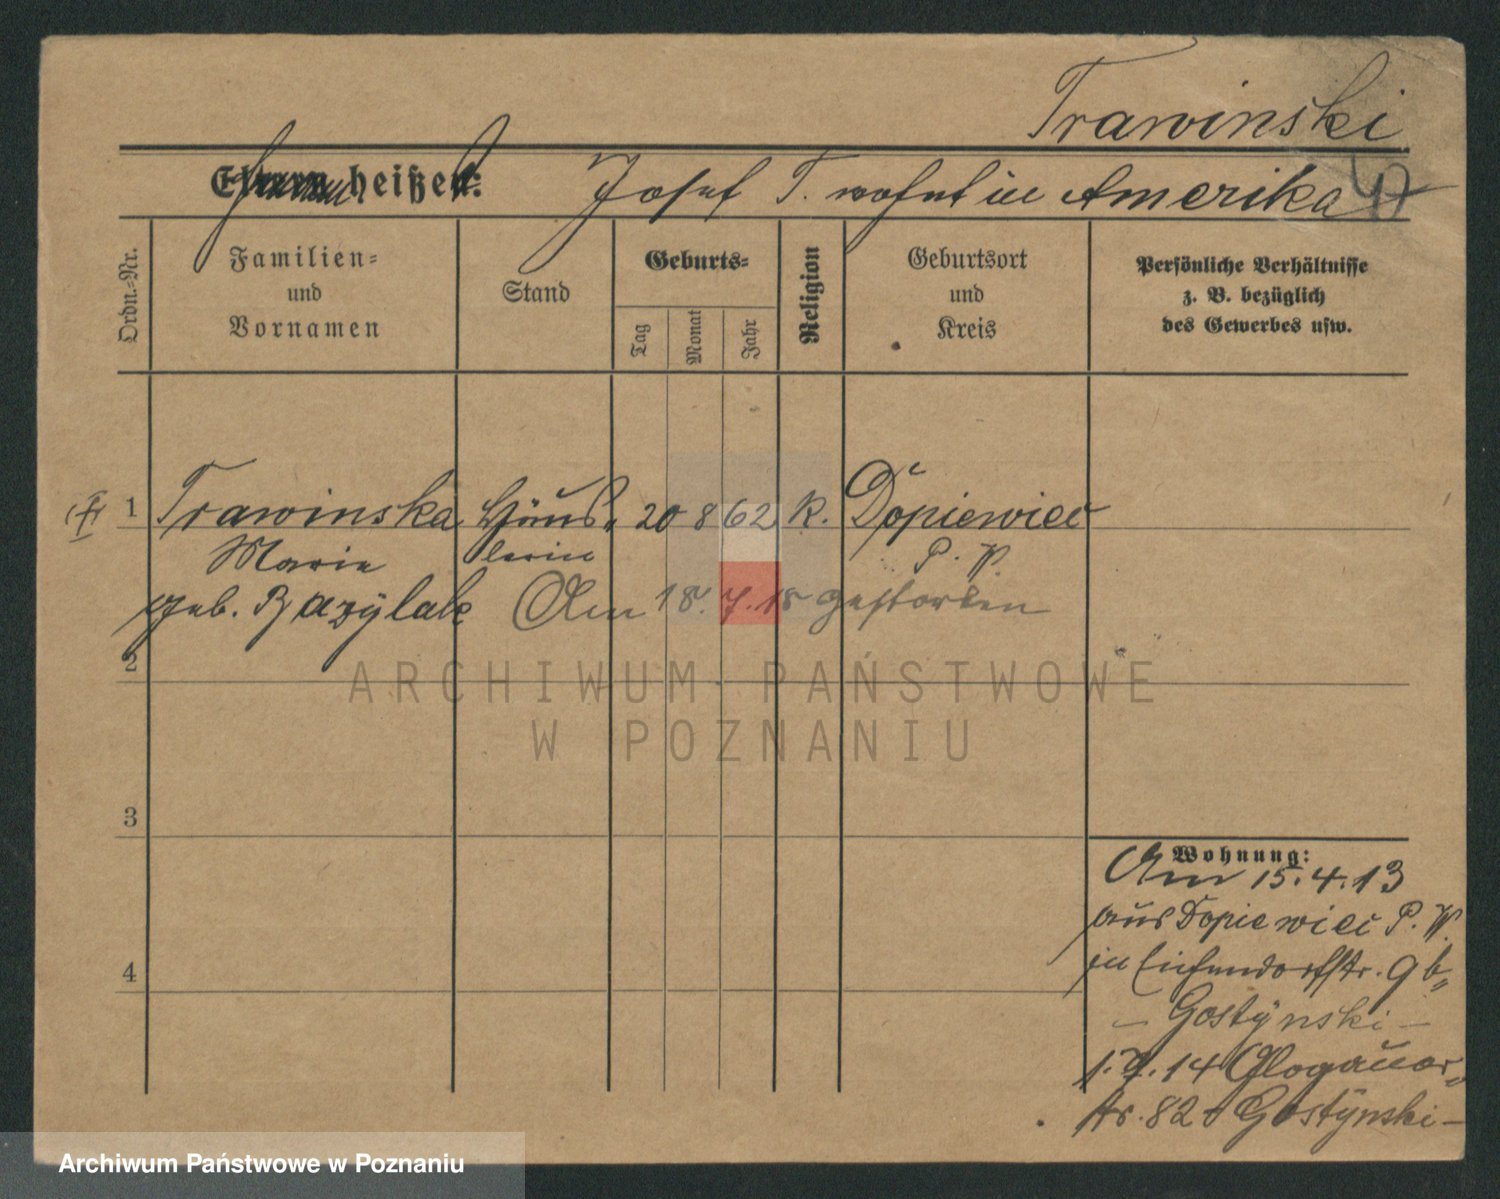 Trawinski.
Eltern heißen: Josef T. wohnt in Amerika
Ordn.-Nr.
Familien-
und
Vornamen
Stand
Geburts-
Tag
Monat
Jahr
Religion
Geburtsort
und
Kreis
Persönliche Verhältnisse
z. B. bezüglich
des Gewerbes usw.
1 Trawinska Häus- 20 8 62 K. Dopiewiec
Marie lerin P. W.
geb. Bazylak Am 18. 7. 18 gestorben
2
ARCHIWUM PAŃSTWOWE
W POZNANIU
3
4
Wohnung:
Am 15.4.13
aus Dopiewiec P. W.
in Eichendorffstr. 9b
– Gostynski –
1.7.14 Glogauer-
str. 82 Gostynski –
Archiwum Państwowe w Poznaniu